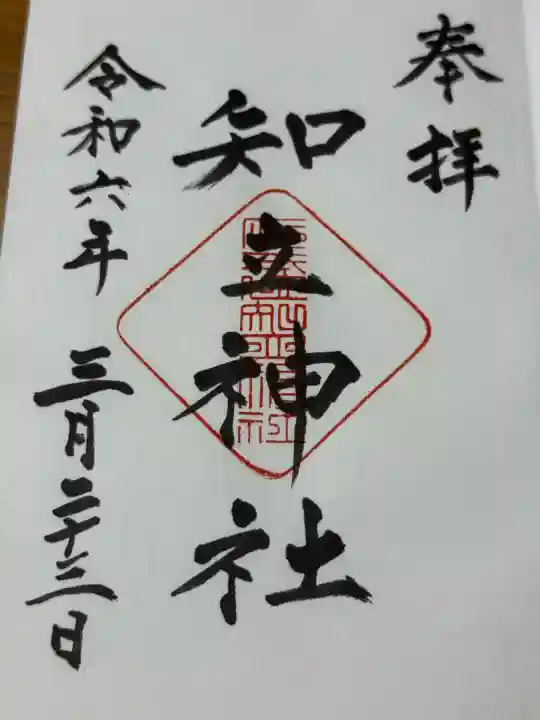 奉拝
知立神社
令和六年 三月二十三日